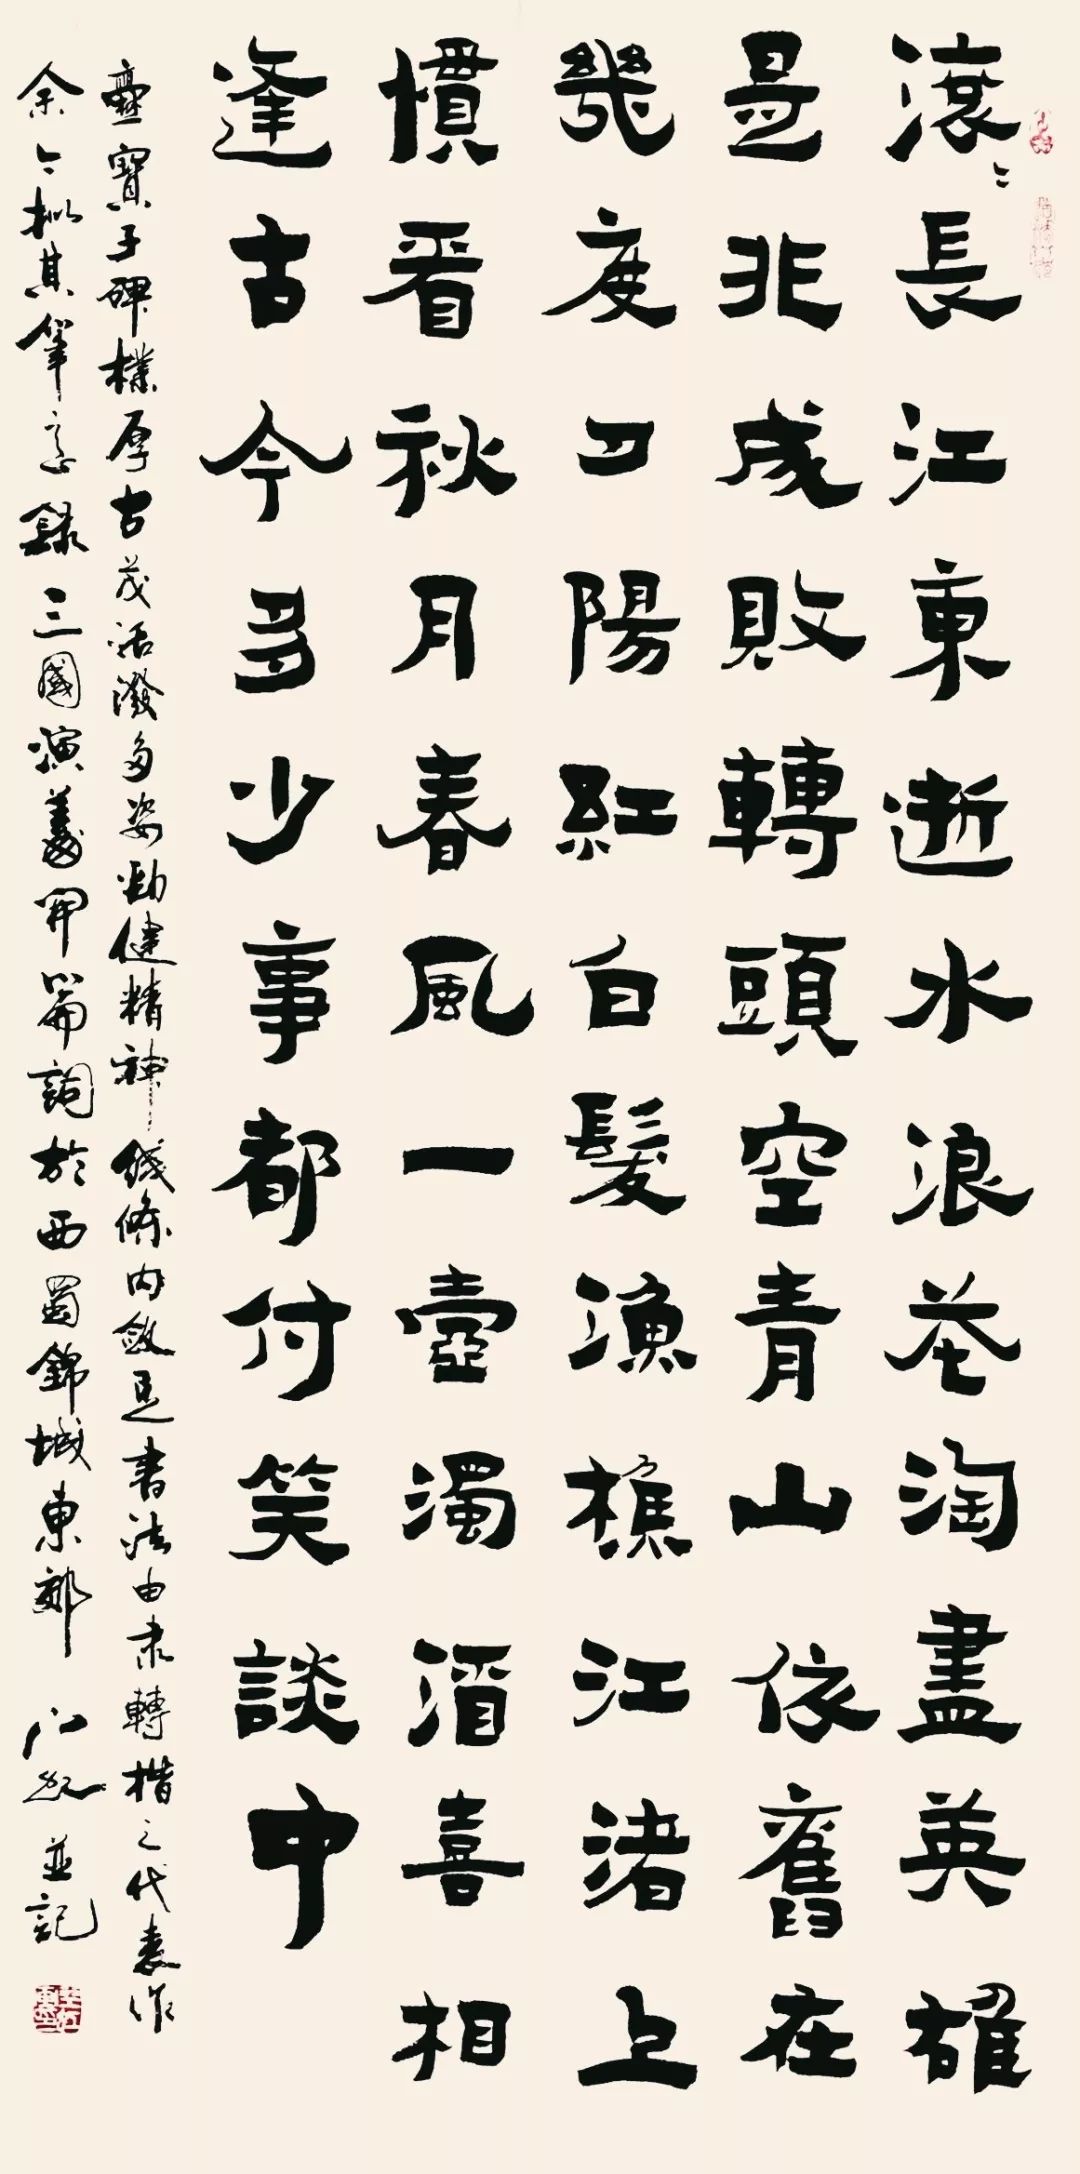 滾〻長江東逝水浪花淘盡英雄
是非成敗轉頭空青山依舊在
幾度夕陽紅白髮漁樵江渚上
慣看秋月春風一壺濁酒喜相
逢古今多少事都付笑談中
爨寶子碑樸厚古茂活潑多姿勁健精神綫條內斂是書法由隸轉楷之代表作
余今拟其筆意錄三國演義開篇詞於西蜀錦城東郊 並記